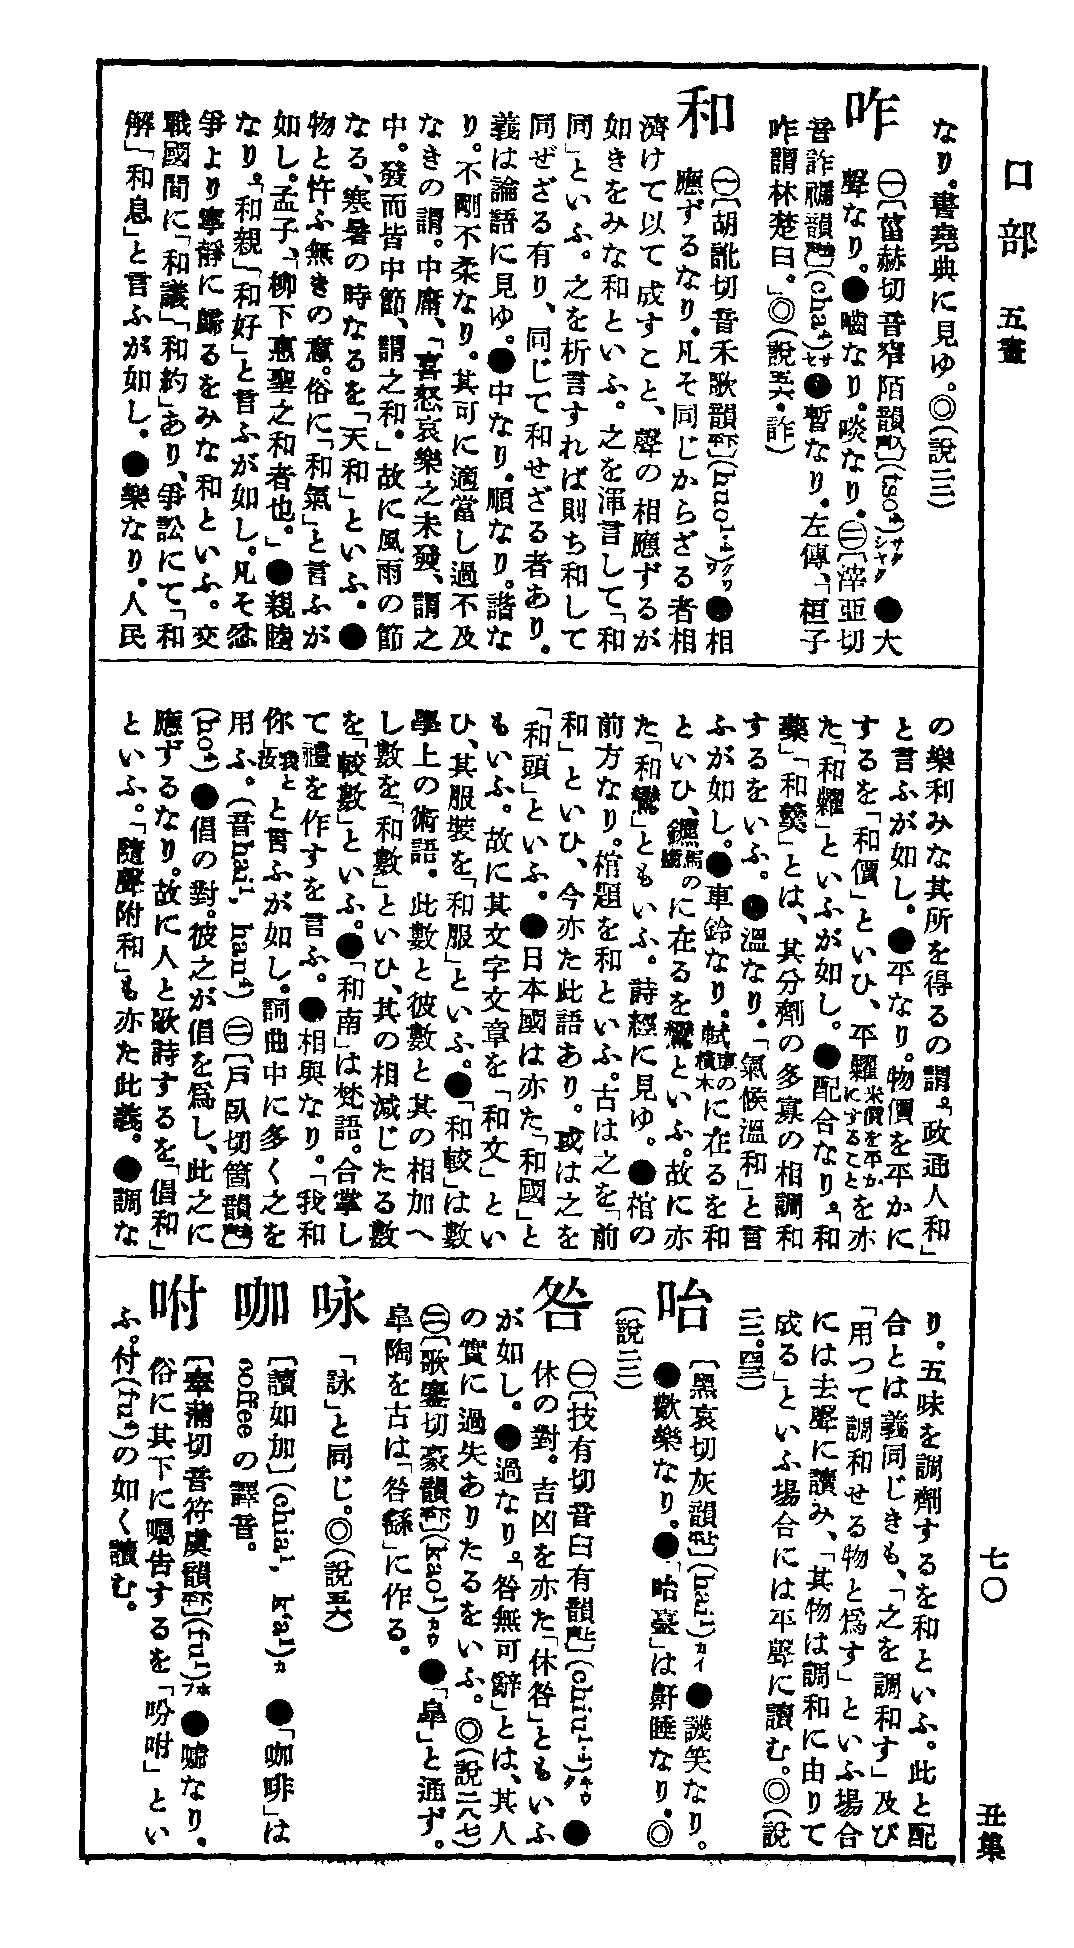 口部 五畫
七〇
丑集
なり。書堯典に見ゆ。◎(說三三)
咋
㊀〔茁赫切音窄陌韻入聲〕(tso⁴)サクシヤク●大
聲なり。●嚙なり。啖なり。㊁〔滓亞切
音詐禡韻去聲〕(cha⁴)サセ●暫なり。左傳、「桓子
咋謂林楚曰。」◎(說五六・詐)
和
㊀〔胡訛切音禾歌韻平聲〕(huo¹·⁴)クワワ●相
應ずるなり。凡そ同じからざる者相
濟けて以て成すこと、聲の相應ずるが
如きをみな和といふ。之を渾言して「和
同」といふ。之を析言すれば則ち和して
同ぜざる有り、同じて和せざる者あり。
義は論語に見ゆ。●中なり。順なり。諧な
り。不剛不柔なり。其可に適當し過不及
なきの謂。中庸、「喜怒哀樂之未發、謂之
中。發而皆中節、謂之和。」故に風雨の節
なる、寒暑の時なるを「天和」といふ。●
物と忤ふ無きの意。俗に「和氣」と言ふが
如し。孟子、「柳下惠聖之和者也。」●親睦
なり。「和親」「和好」と言ふが如し。凡そ忿
爭より寧靜に歸るをみな和といふ。交
戰國間に「和議」「和約」あり、爭訟にて「和
解」「和息」と言ふが如し。●樂なり。人民
の樂利みな其所を得るの謂。「政通人和」
と言ふが如し。●平なり。物價を平かに
するを「和價」といひ、平糶米價を平かにすることを亦
た「和糶」といふが如し。●配合なり。「和
藥」「和羹」とは、其分劑の多寡の相調和
するをいふ。●溫なり。「氣候溫和」と言
ふが如し。●車鈴なり。軾車の橫木に在るを和
といひ、鑣馬の銜に在るを鸞といふ。故に亦
た「和鸞」ともいふ。詩經に見ゆ。●棺の
前方なり。棺題を和といふ。古は之を「前
和」といひ、今亦た此語あり。或は之を
「和頭」といふ。●日本國は亦た「和國」と
もいふ。故に其文字文章を「和文」とい
ひ、其服裝を「和服」といふ。●「和較」は數
學上の術語。此數と彼數と其の相加へ
し數を「和數」といひ、其の相減じたる數
を「較數」といふ。●「和南」は梵語。合掌し
て禮を作すを言ふ。●相與なり。「我和
你」我と汝と言ふが如し。詞曲中に多く之を
用ふ。(音hai¹, han⁴)㊁〔戶臥切箇韻去聲〕
(ho⁴)●倡の對。彼之が倡を爲し、此之に
應ずるなり。故に人と歌詩するを「倡和」
といふ。「隨聲附和」も亦た此義。●調な
り。五味を調劑するを和といふ。此と配
合とは義同じきも、「之を調和す」及び
「用つて調和せる物と爲す」といふ場合
には去聲に讀み、「其物は調和に由りて
成る」といふ場合には平聲に讀む。◎(說
三三。四三)
咍
〔黑哀切灰韻上平〕(hai¹)カイ●譏笑なり。
●歡樂なり。●「咍臺」は鼾睡なり。◎
(說三三)
咎
㊀〔技有切音臼有韻上聲〕(chiu¹·⁴)キウク●
休の對。吉凶を亦た「休咎」ともいふ
が如し。●過なり。「咎無可辭」とは、其人
の實に過失ありたるをいふ。◎(說二八七)
㊁〔歌鏖切豪韻下平〕(kao¹)カウ●「皐」と通ず。
皐陶を古は「咎繇」に作る。
咏
「詠」と同じ。◎(說五六)
咖
〔讀如加〕(chia¹, k'a¹)カ●「咖啡」は
coffeeの譯音。
咐
〔奉蒲切音符虞韻下平〕(fu¹)フホ●噓なり。
俗に其下に囑告するを「吩咐」とい
ふ。付(fu⁴)の如く讀む。